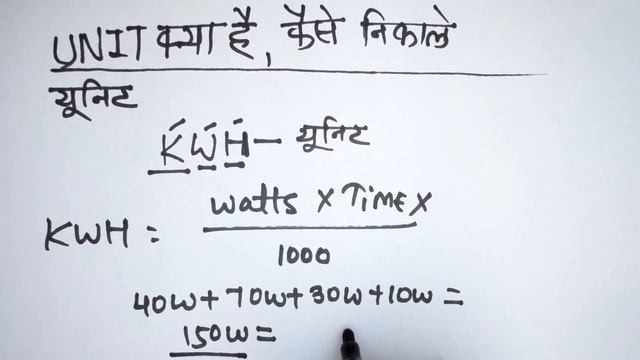 UNIT क्या है, कैसे निकाले
यूनिट
KWH — यूनिट
KWH = watts x TIME x
1000
40W + 70W + 30W + 10W =
150W =